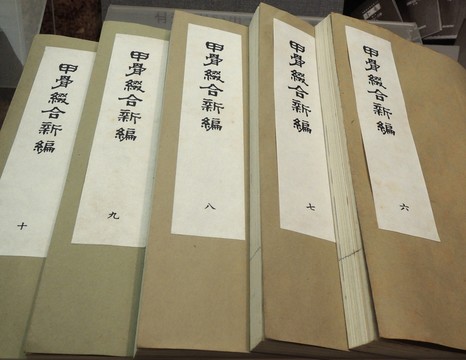 甲骨綴合新編
六
甲骨綴合新編
七
甲骨綴合新編
八
甲骨綴合新編
九
甲骨綴合新編
十